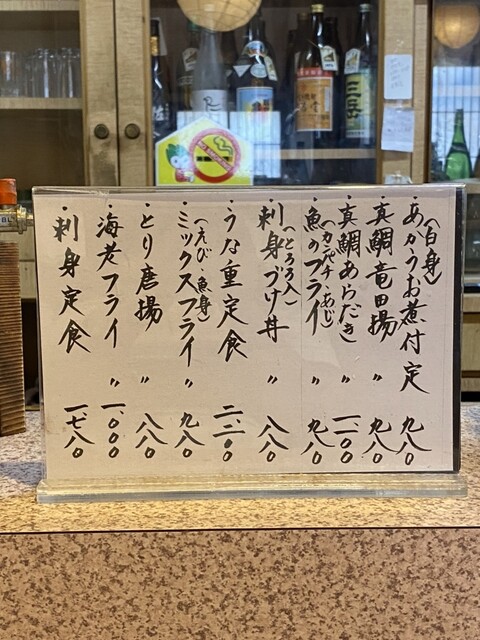 ・あかうお煮付定 九八〇
(白身)
・真鯛竜田揚 〃 九八〇
・真鯛あらだき 〃 一、一〇〇
・魚のフライ 〃 九八〇
(カンパチ・あじ)
・刺身づけ丼 〃 八八〇
(とろろ入)
・うな重定食 二、二〇〇
・ミックスフライ 〃 九八〇
(えび・魚身)
・とり唐揚 〃 八八〇
・海老フライ 〃 一、〇〇〇
・刺身定食 一、七八〇
三岳